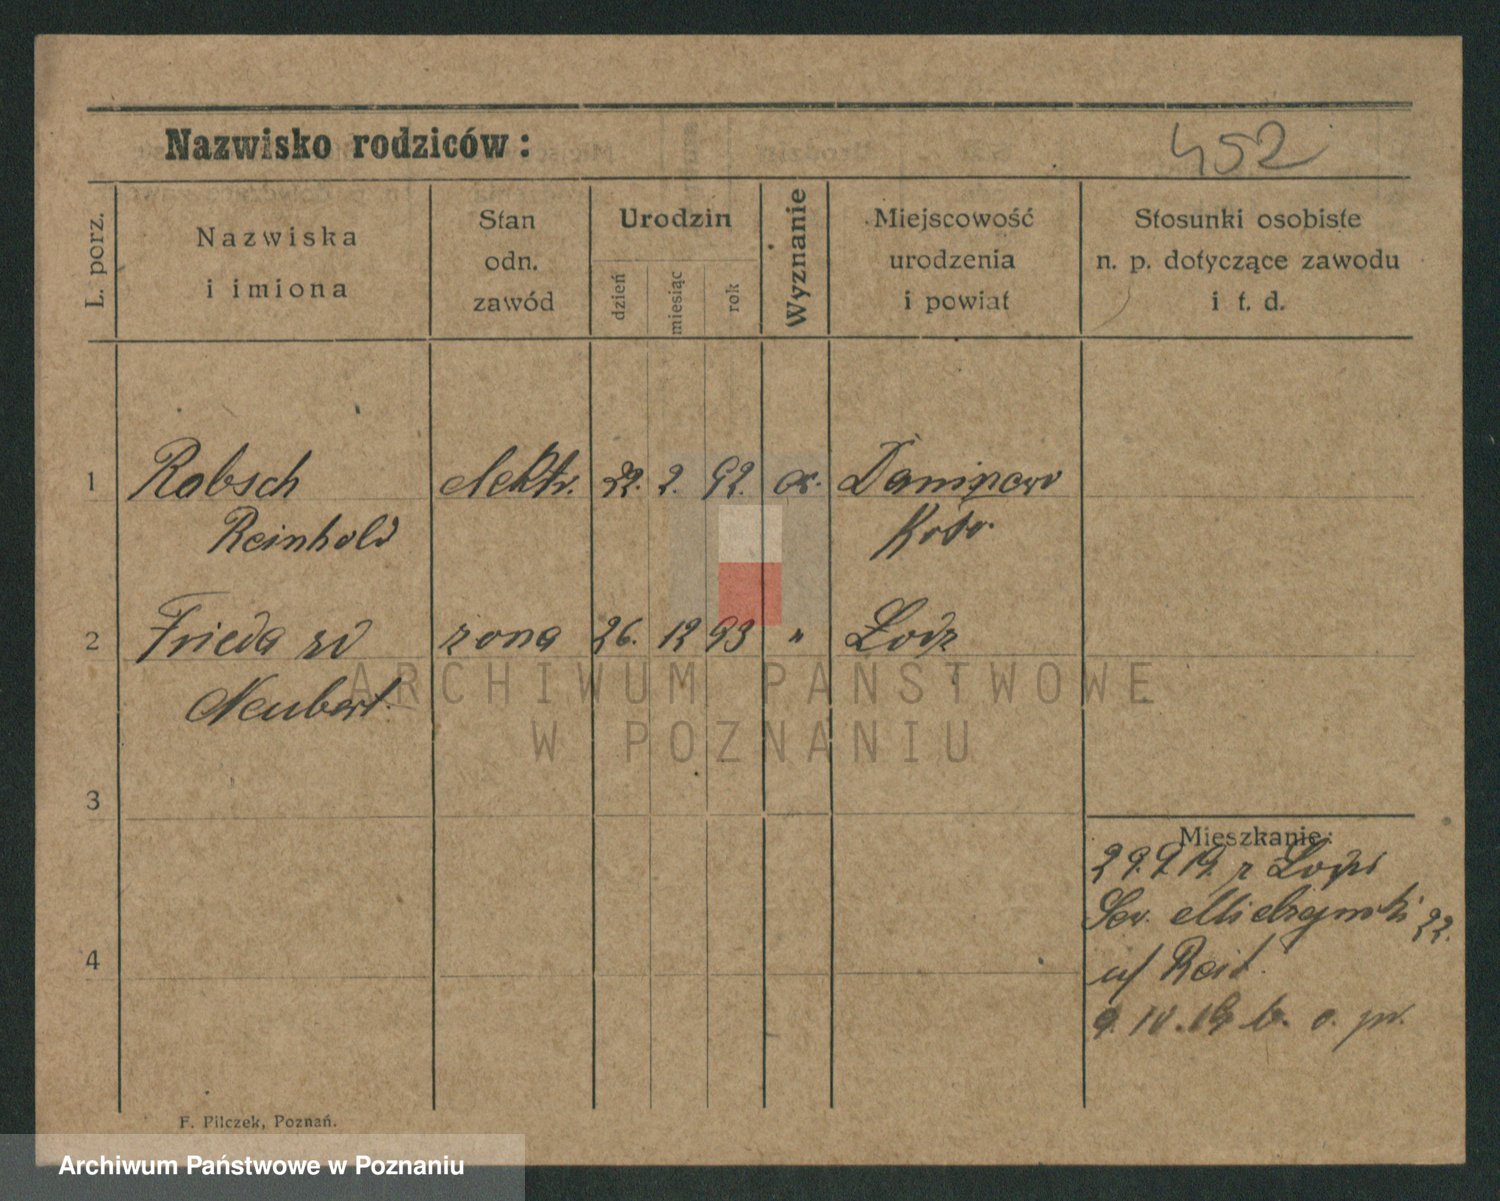 Nazwisko rodziców:
452
L. porz.
Nazwiska
i imiona
Stan
odn.
zawód
Urodzin
dzień
miesiąc
rok
Wyznanie
Miejscowość
urodzenia
i powiat
Stosunki osobiste
n. p. dotyczące zawodu
i t. d.
1 Rabsch elektr. 22. 2. 92.
Reinhold Koło.
2 Frieda zd żona 26. 12 93 " Łodz
Neubert.
ARCHIWUM PAŃSTWOWE
W POZNANIU
3
Mieszkanie:
29.9.19. z Łodzi
Sew. Mielżyński 22.
4
u/ Reit.
9.10.19 b. o. pr.
F. Pilczek, Poznań.
Archiwum Państwowe w Poznaniu